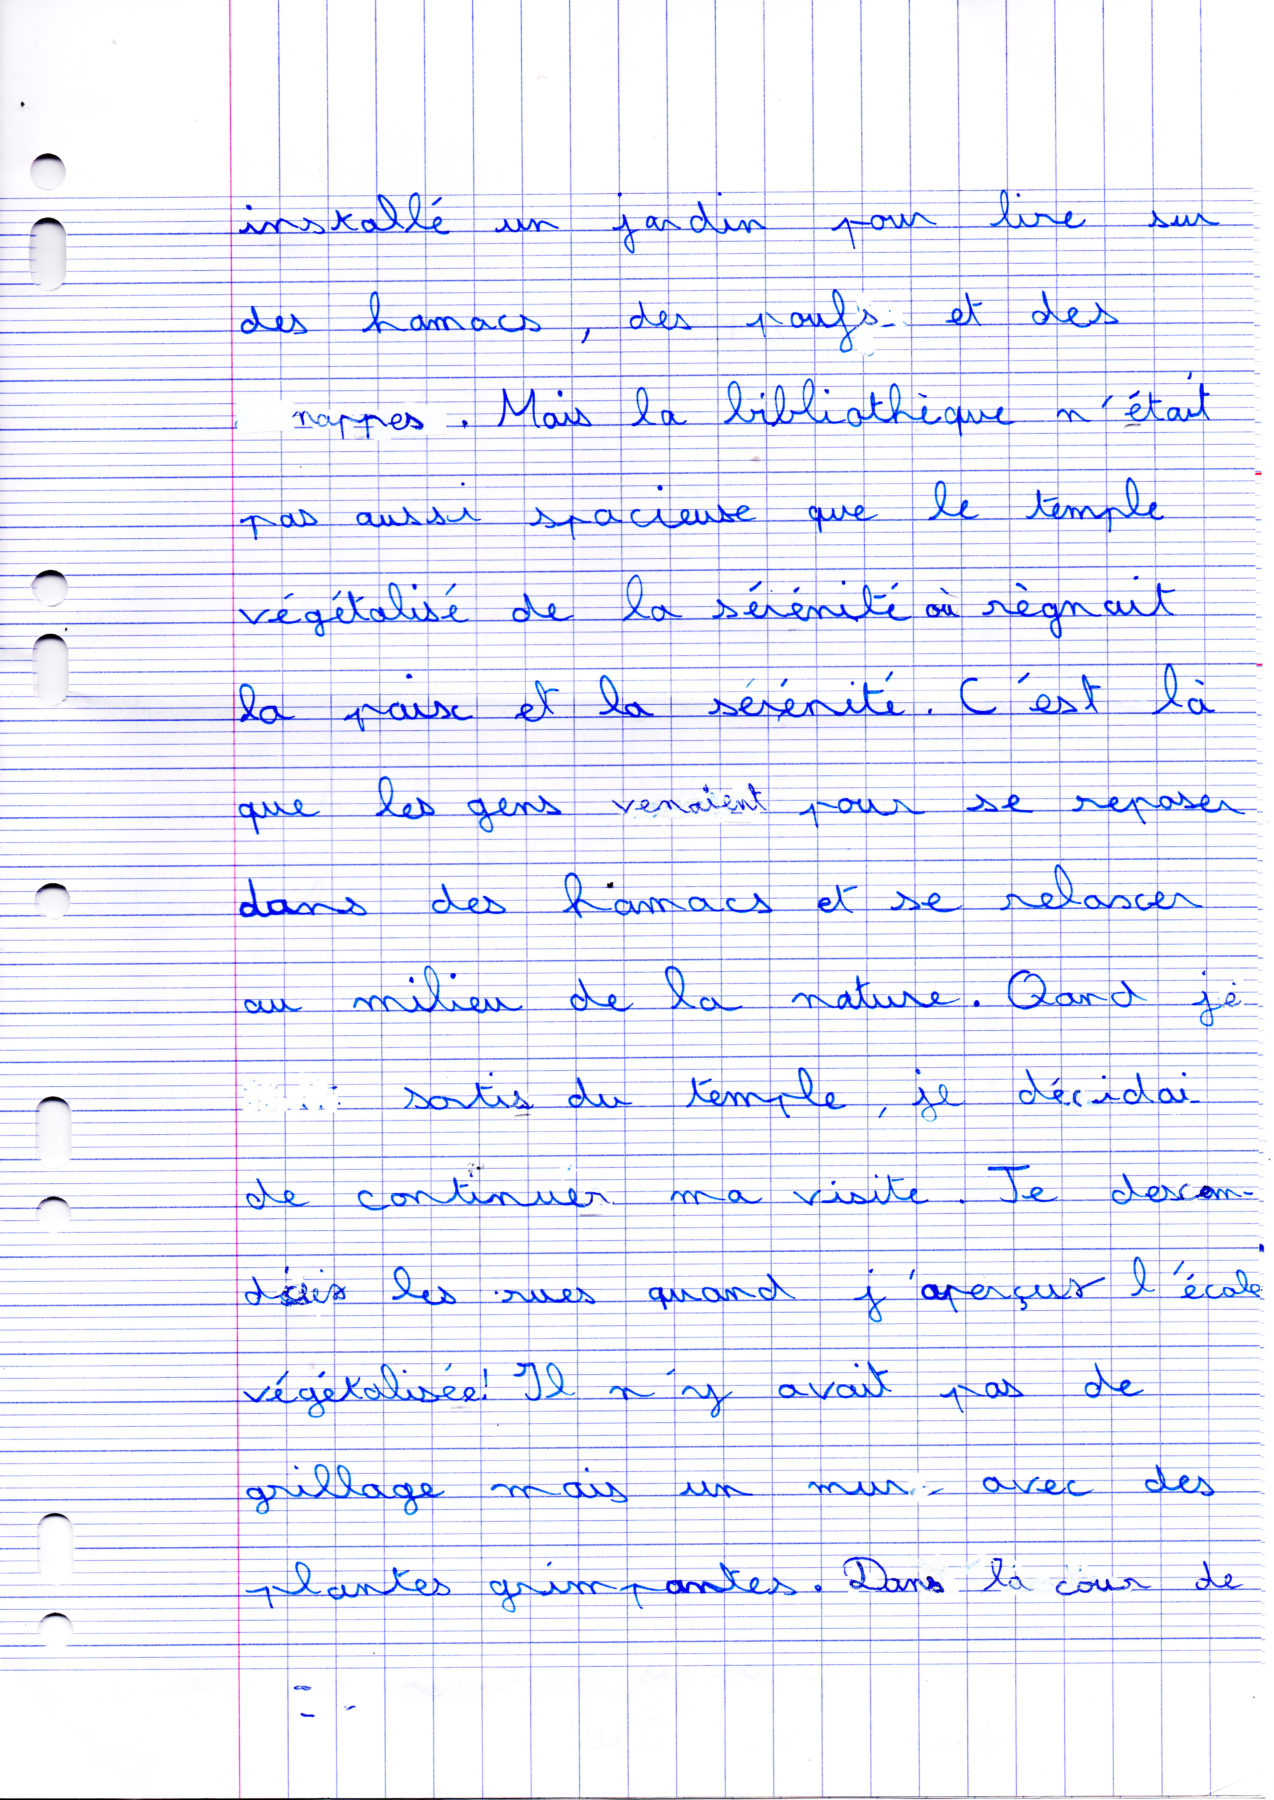 installé un jardin pour lire sur
des hamacs, des poufs et des
nappes. Mais la bibliothèque n'était
pas aussi spacieuse que le temple
végétalisé de la sérénité où règnait
la paix et la sérénité. C'est là
que les gens venaient pour se reposer
dans des hamacs et se relaxer
au milieu de la nature. Qand je
sortis du temple, je décidai
de continuer ma visite. Je descen-
dais les rues quand j'aperçus l'école
végétalisée! Il n'y avait pas de
grillage mais un mur avec des
plantes grimpantes. Dans la cour de